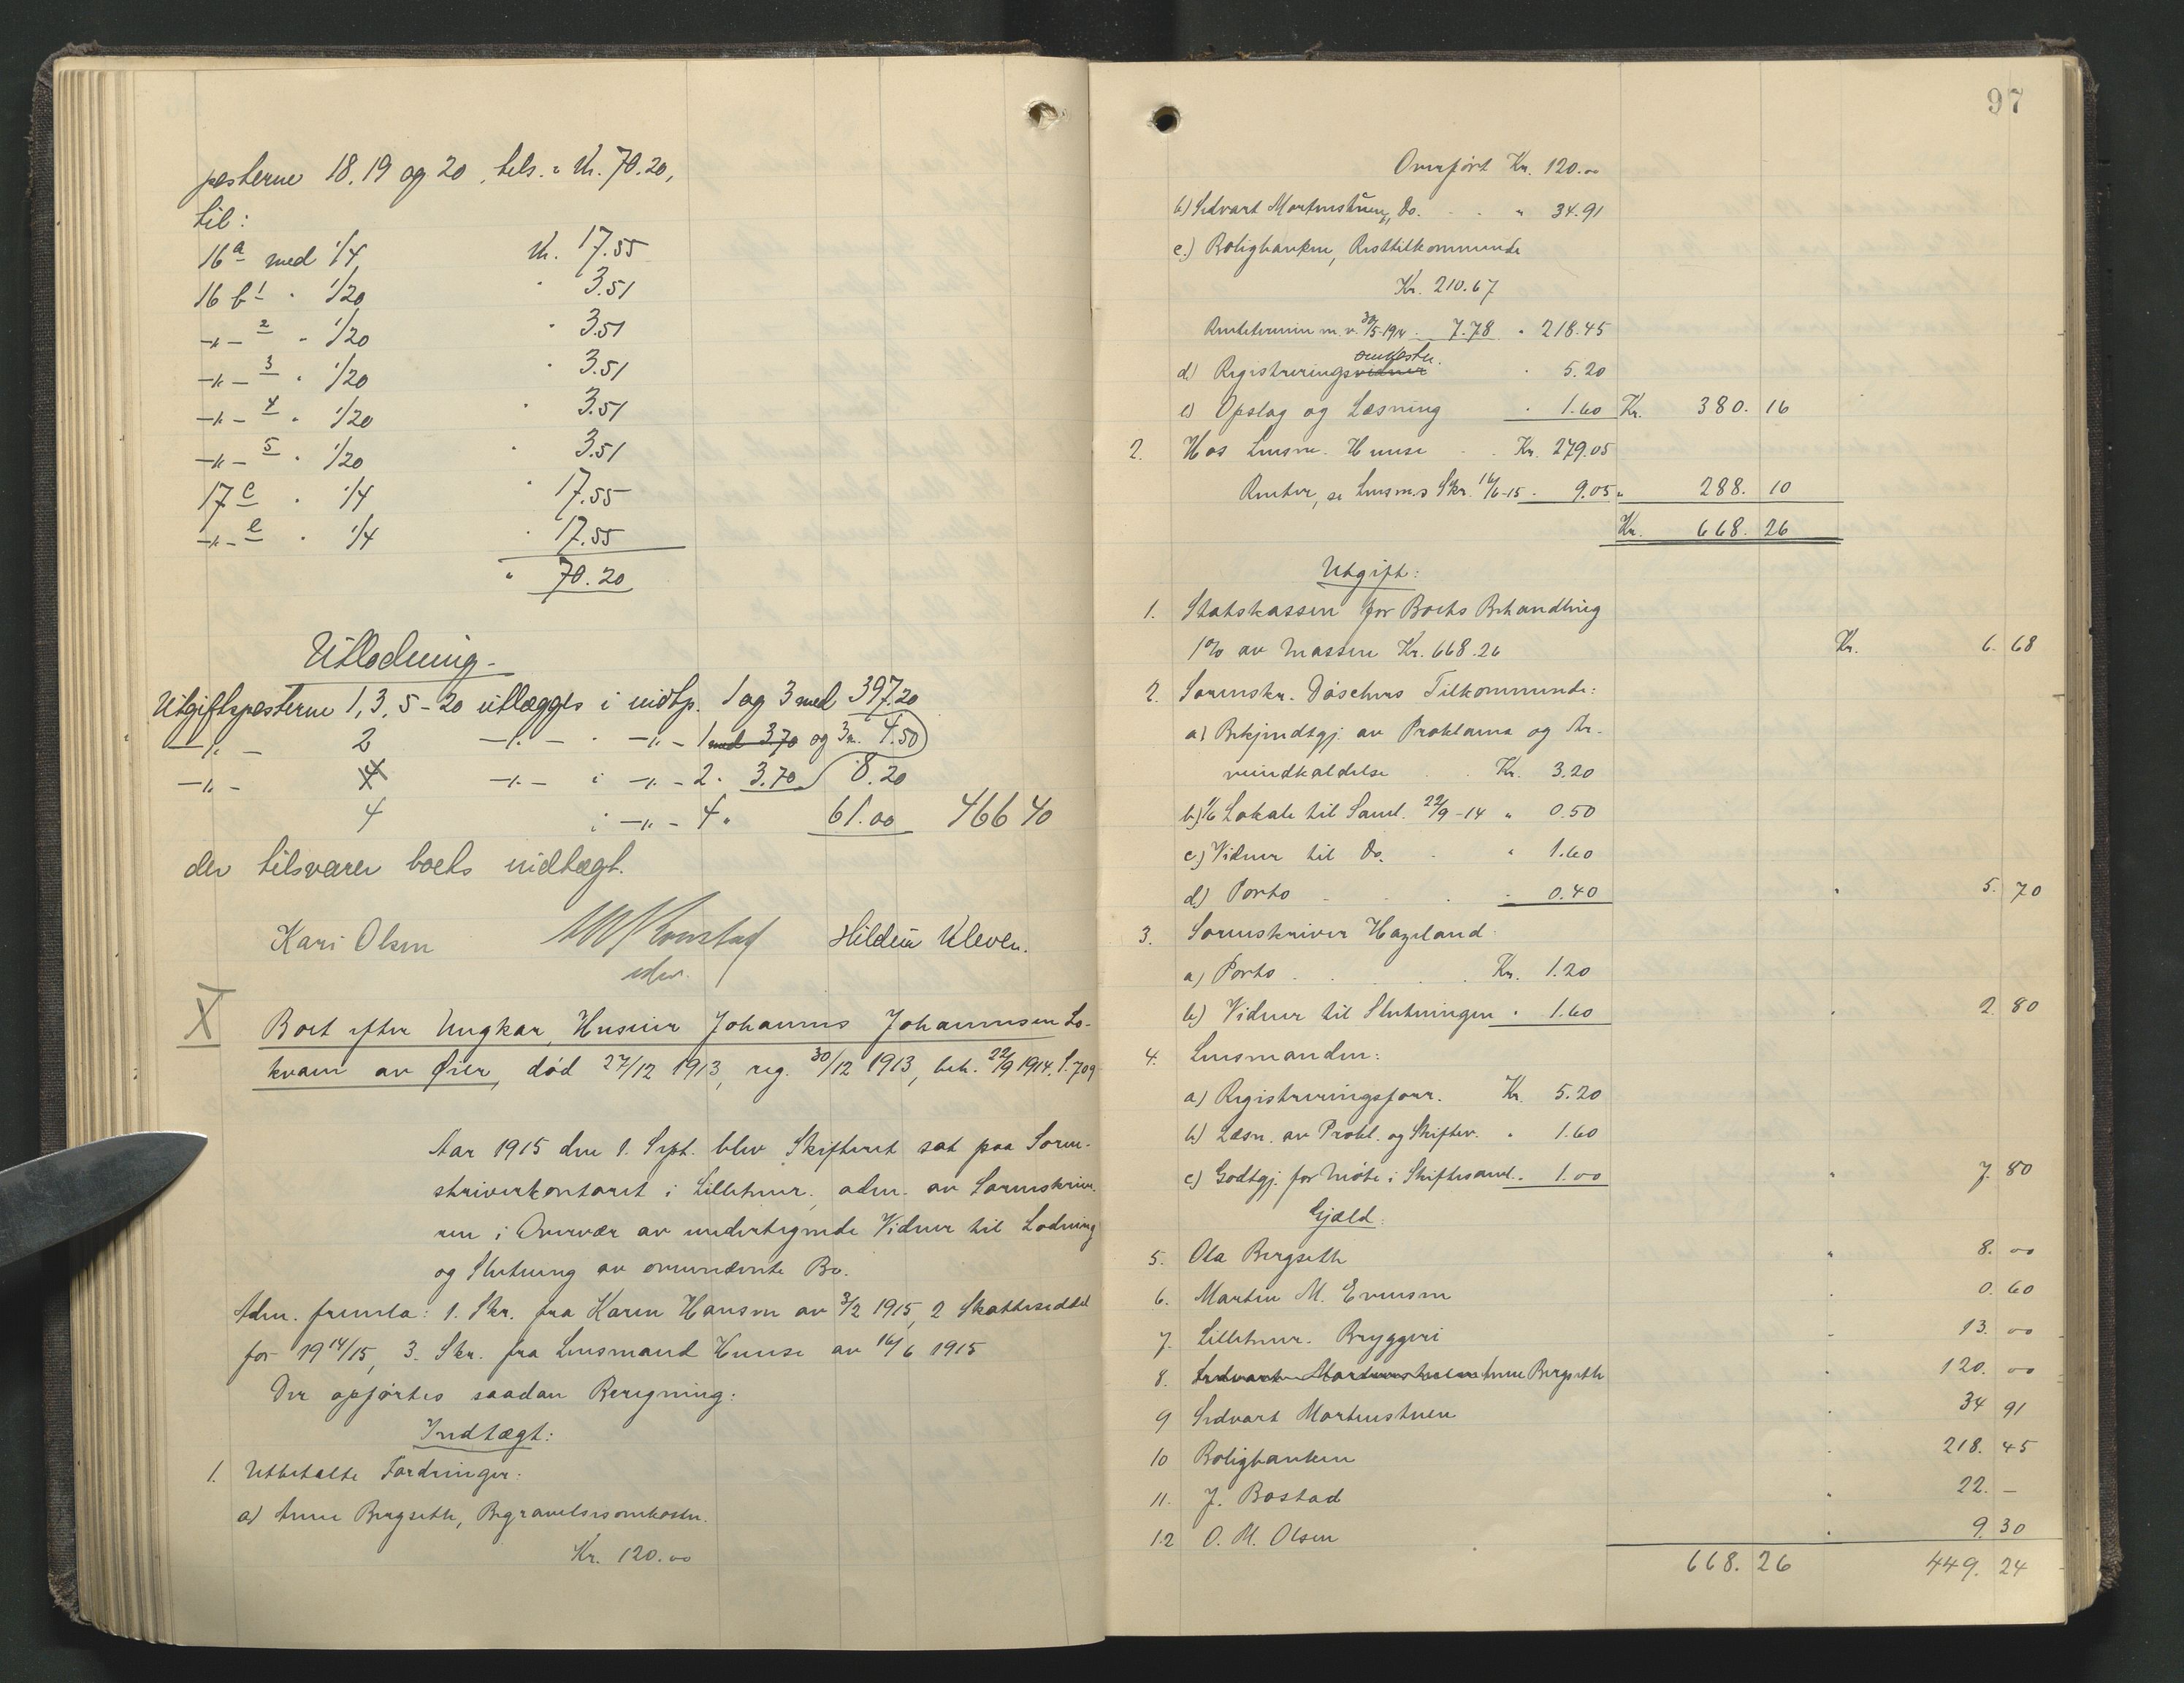 posterne 18. 19 og 20, tils. = Kr. 70.20,
til:
16 a med 1/4, Kr. 17.55
16 b 1 " 1/20 " 3.51
-"- 2 " 1/20 " 3.51
-"- 3 " 1/20 " 3.51
-"- 4 " 1/20 " 3.51
-"- 5 " 1/20 " 3.51
17 c " 1/4 " 17.55
-"- e " 1/4 " 17.55
" 70.20
Utlodning -
Utgiftsposterne 1, 3, 5-20 utlægges i indtp. 1 og 3 med 397.20
-"- 2 -"- " -"- 1 med 3.70 og 3 m. 4.50
-"- 4 -"- i -"- 2 " 3.70 8.20
4 i -"- 4 " 61.00 466 40
der tilsvarer boets indtægt.
Kari Olsen Hildeur Kleven.
X Boet efter Ungkar, Huseier Johannes Johannesen Lo-
kvam av Øier, død 27/12 1913, reg. 30/12 1913, beh. 22/9 1914. S. 709
Aar 1915 den 1. Sept. blev Skifteret sat paa Soren-
skriverkontoret i Lillehmr. adm. av Sorenskrive-
ren i Overvær av undertegnede Vidner til Lodning
og Slutning av ovennævnte Bo.
Adm. fremla: 1. Skr. fra Karen Hansen av 3/2 1915, 2 Skatteseddel
for 1914/15, 3. Skr. fra Lensmand Hunse av 16/6 1915
Der opførtes saadan Beregning:
Indtægt:
1. Utbetalte Fordringer:
a) Anne Bergseth, Begravelsesomkostn.
Kr. 120.00
97
Overført Kr. 120.00
b) Sedvart Mortenstuen, Do. " 34.91
c.) Boligbanken, Resttilkommende
Kr. 210.67
Rentetermin m. v. 30/5-1914 . 7.78 " 218.45
d) Registreringsvidner omkostn. " 5.20
e) Opslag og Læsning " 1.60 Kr. 380. 16
2. Hos Lensm. Hunse . . Kr. 279.05
Renter, se Lensm.s Skr. 16/6-15 . 9.05 " 288. 10
Kr. 668. 26
Utgift:
1. Statskassen for Boets Behandling
1% av Massen Kr. 668.26 Kr. 6. 68
2. Sorenskr. Døschers Tilkommende:
a) Bekjendtgj. av Proklama og Ar-
veindkaldelse . . Kr. 3.20
b) 1/6 Lokale til Saml. 22/9-14 " 0.50
c) Vidner til Do. . " 1.60
d) Porto . . . " 0.40 " 5. 70
3. Sorenskriver Hazeland:
a) Porto . . . Kr. 1.20
b) Vidner til Slutningen " 1.60 " 2. 80
4. Lensmanden:
a) Registreringsforr. Kr. 5.20
b) Læsn. av Prokl. og Skiftev. " 1.60
c) Godtgj. for Møte i Skiftesaml. " 1.00 " 7. 80
Gjæld:
5. Ola Bergseth " 8. 00
6. Martin M. Evensen " 0. 60
7. Lillehmr. Bryggeri " 13. 00
8. Sedvart Mortenstuen Anne Bergseth " 120. 00
9 Sedvart Mortenstuen " 34 91
10 Boligbanken " 218. 45
11. J. Bostad " 22. -
12 O. M. Olsen " 9. 30
668. 26 449. 24